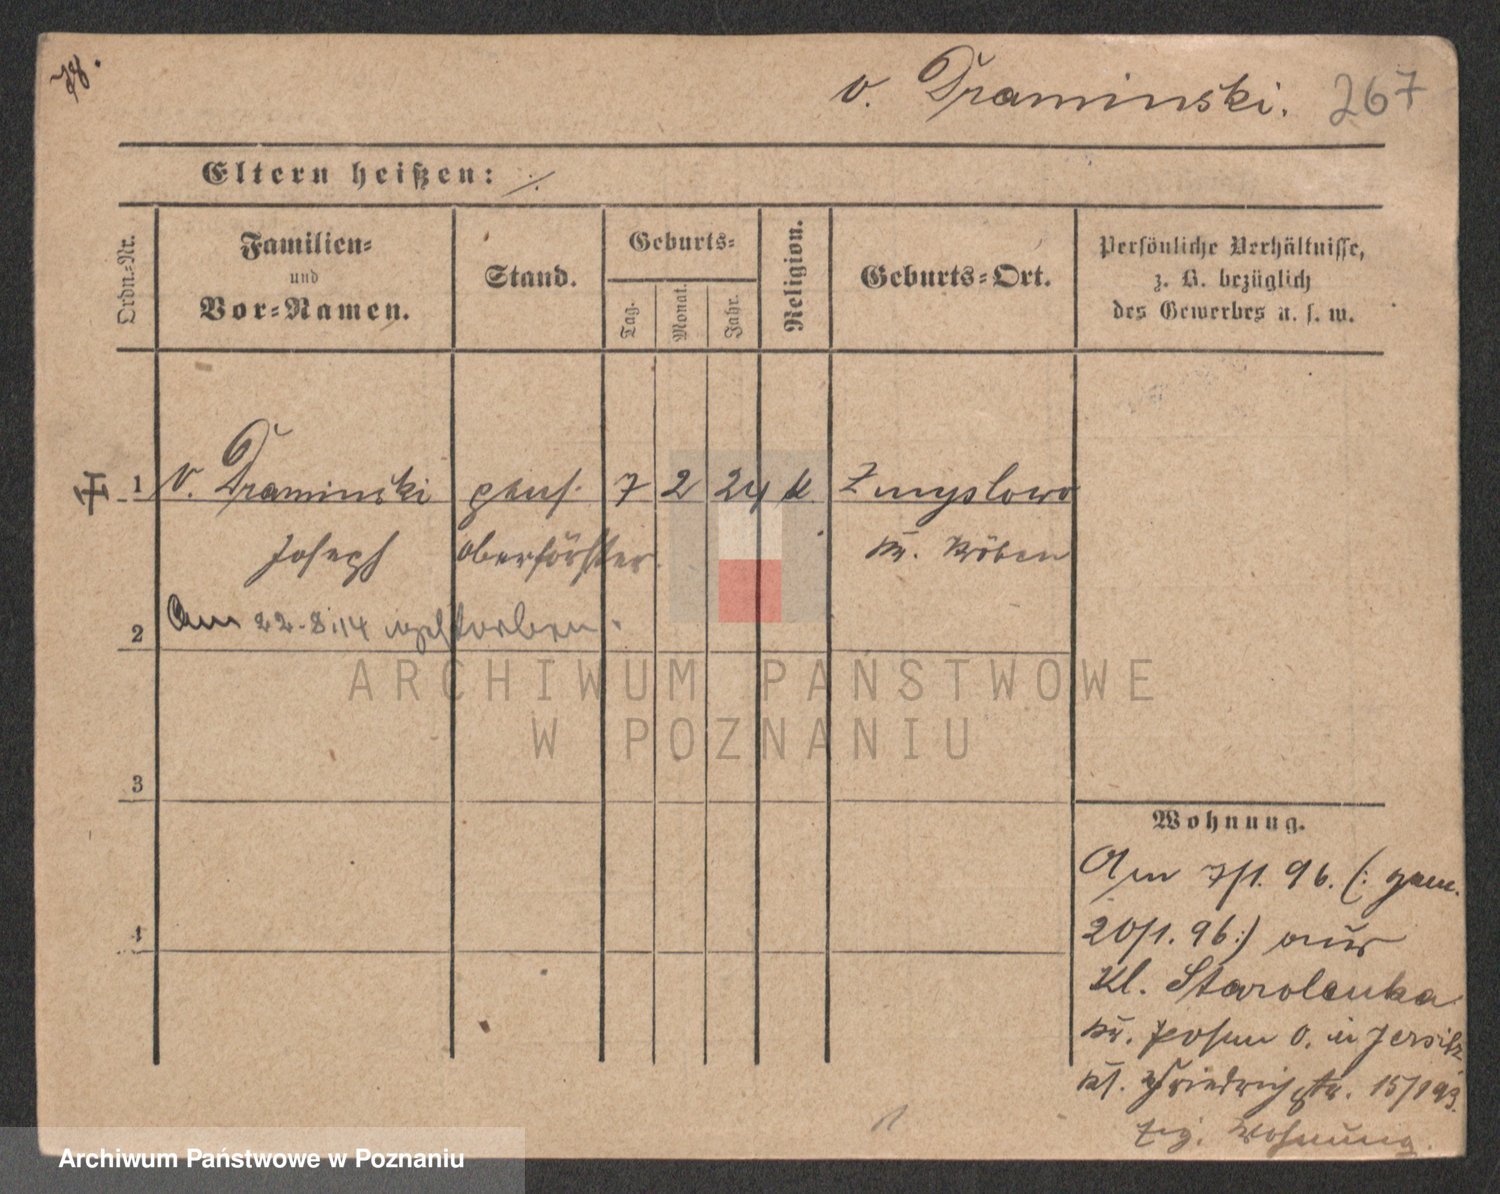 78.
v. Draminski. 267
Eltern heißen: ·/.
Ordn.-Nr.
Familien-
und
Vor-Namen.
Stand.
Geburts-
Tag.
Monat.
Jahr.
Religion.
Geburts-Ort.
Persönliche Verhältnisse,
z. B. bezüglich
des Gewerbes u. s. w.
1 v. Draminski pens. 7 2 24 k. Zmyslowo
Joseph Oberförster Kr. Kröben
2 Am 22.8.14 verstorben.
3
4
Wohnung.
Am 7/1. 96. (: gem.
20/1. 96 :) aus
Kl. Starolenka
Kr. Posen O. in Jersitz
Friedrichstr. 15/193.
Wohnung.
ARCHIWUM PAŃSTWOWE
W POZNANIU
Archiwum Państwowe w Poznaniu